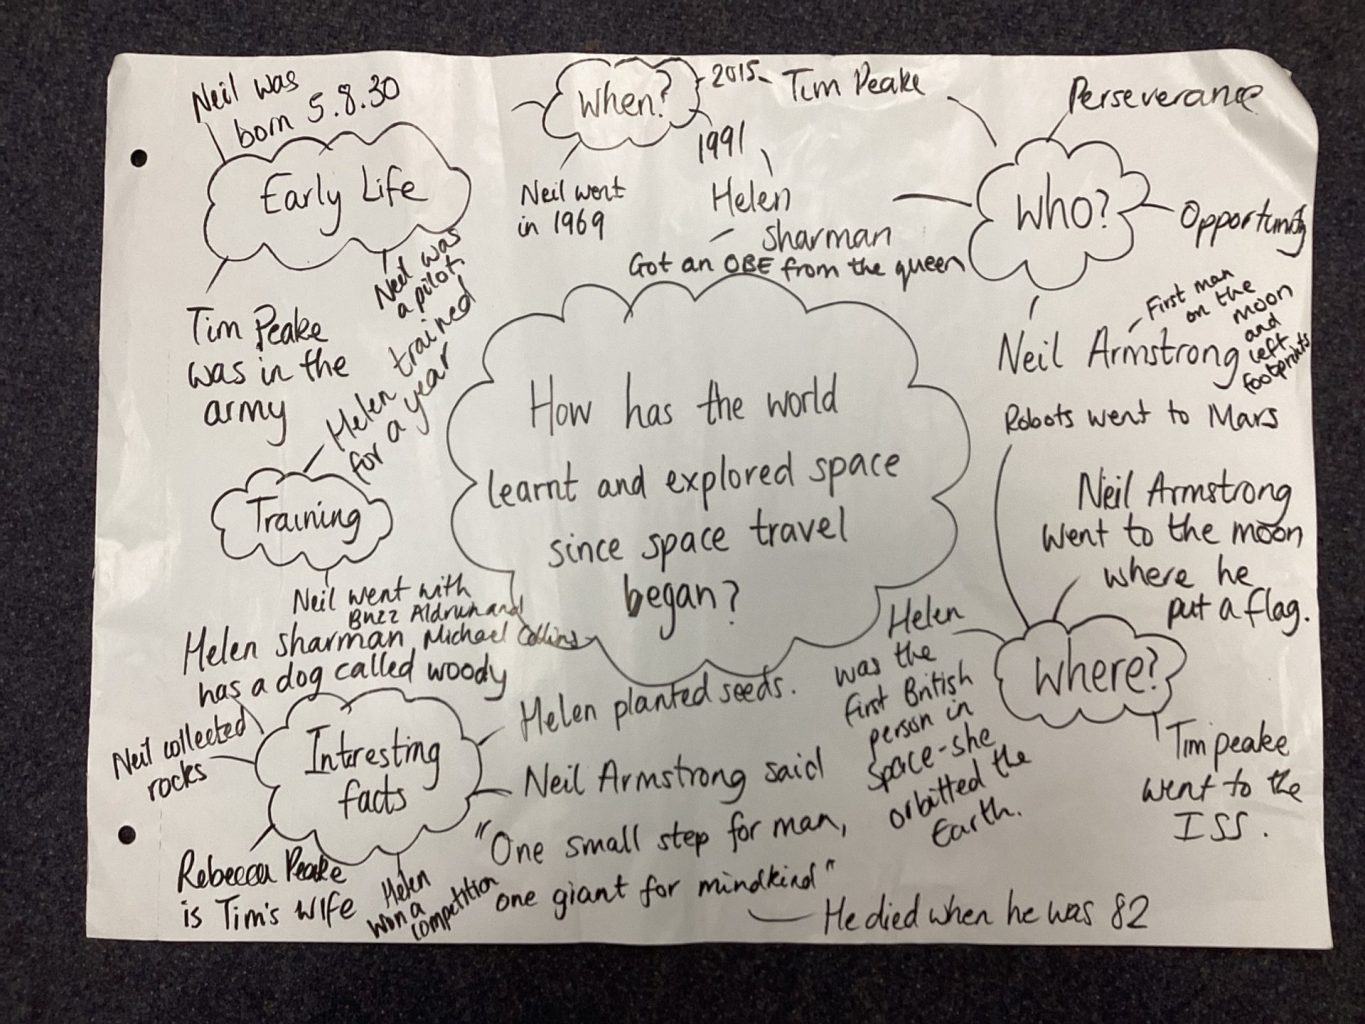 Neil was
born 5.8.30
Early Life
Neil was
a pilot.
Tim Peake
was in the
army
When?
2015 - Tim Peake
1991
Helen
Sharman
Got an OBE from the queen
Neil went
in 1969
Who?
Perseverance
Opportunity
Neil Armstrong
First man
on the
moon
and
left
footprints
How has the world
learnt and explored space
since space travel
began?
Training
Helen trained
for a year
Neil went with
Buzz Aldrun and
Michael Collins
Where?
Robots went to Mars
Neil Armstrong
went to the moon
where he
put a flag.
Helen
was the
first British
person in
space - she
orbitted the
Earth.
Tim peake
went to the
ISS.
Interesting
facts
Helen Sharman
has a dog called woody
Neil collected
rocks
Rebecca Peake
is Tim's wife
Helen
won a
competition
Helen planted seeds.
Neil Armstrong said
"One small step for man,
one giant for mindkind"
He died when he was 82